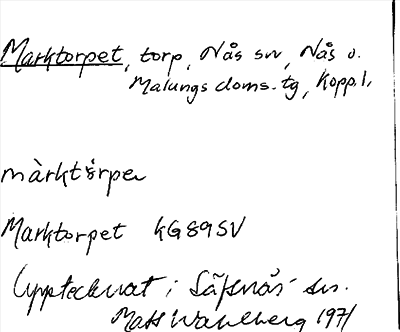 Marktorpet, torp, Nås sn, Nås o.
Malungs doms. tg, Kopp. l.
màrktårpe
Marktorpet KG89SV
Upptecknat i Säfsnäs sn.
Mats Wahlberg 1971